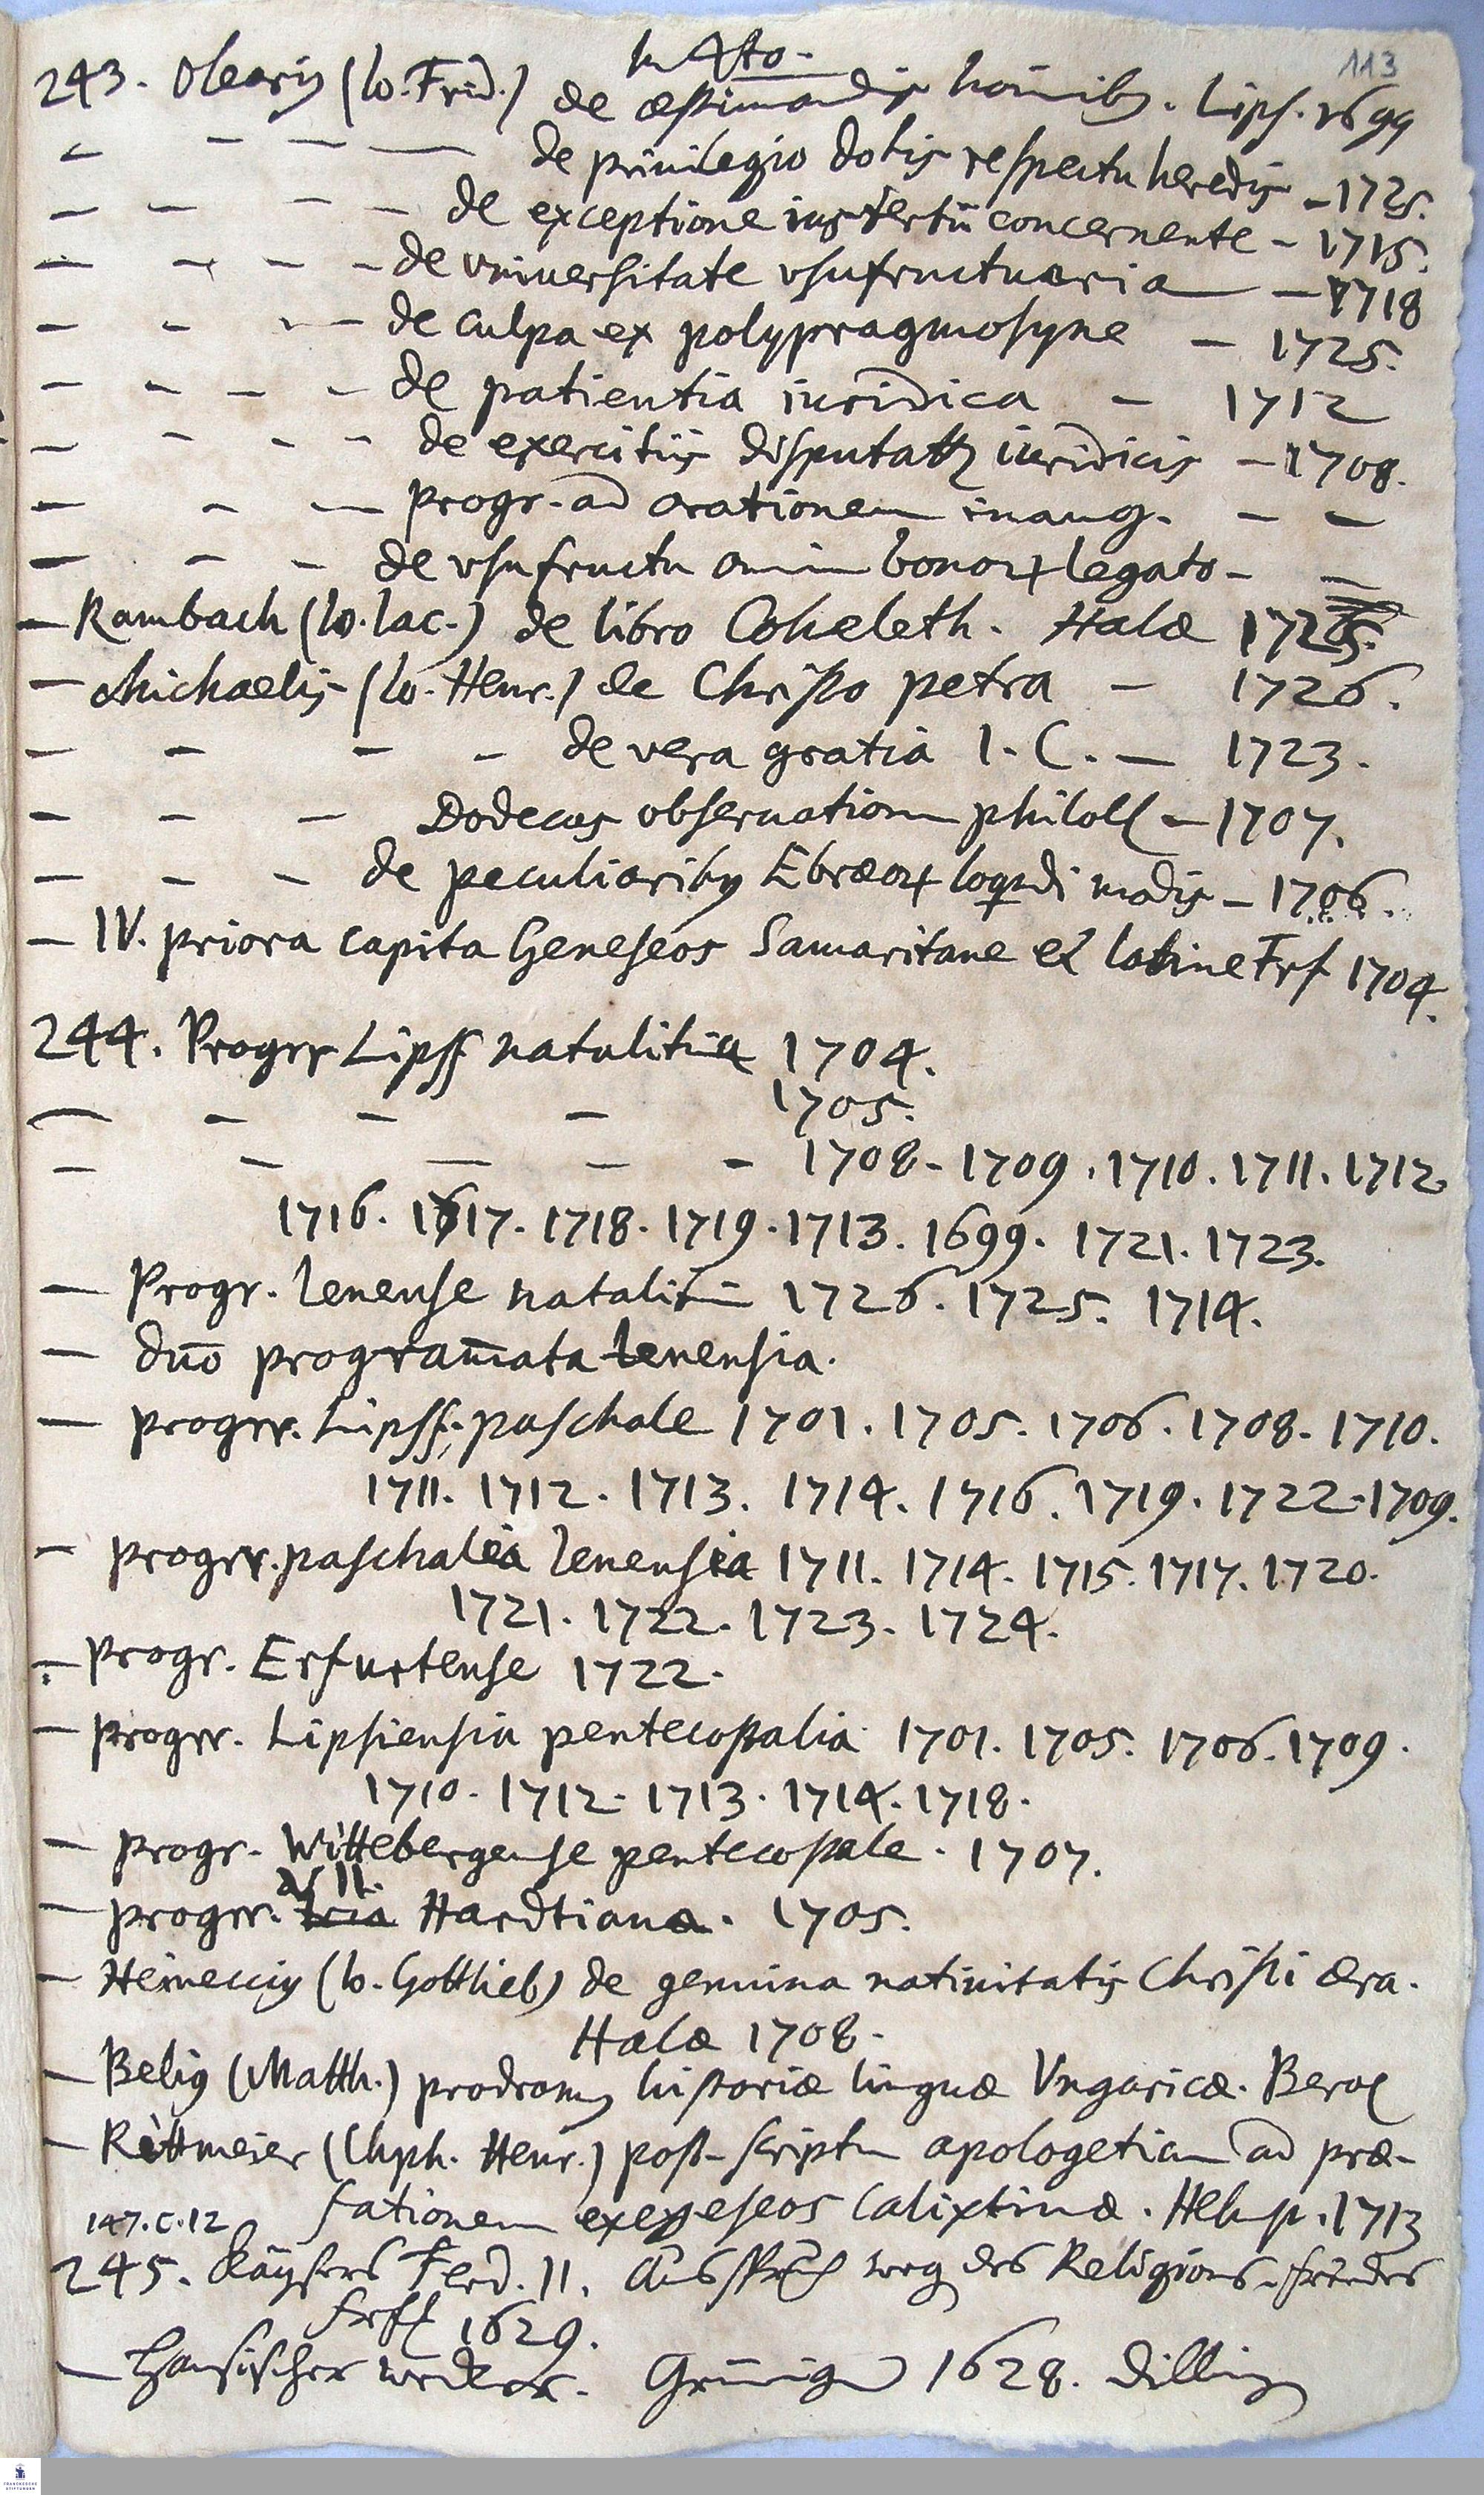 113
In 4to.
243. Olearius (Io. Frid.) de æstimandis hominibus. Lips. 1699
— — — — de priuilegio dotis respectu heredis — 1725.
— — — — de exceptione ius tertii concernente — 1715.
— — — — de vniuersitate vsufructuaria — 1718
— — — — de culpa ex polypragmosyne — 1725.
— — — — de patientia iuridica — 1712
— — — — de exercitiis disputatt. iuridicis — 1708.
— — — progr. ad orationem inaug. — —
— — — de vsufructu omnium bonorum legato — =
— Rambach (Io. Iac.) de libro Coheleth. Halæ 1725.
— Michaelis (Io. Henr.) de Christo petra — 1726.
— — — — de vera gratia I. C. — 1723.
— — — Dodecas obseruationum philoll. — 1707.
— — — de peculiaribus Ebræorum loquendi modis — 1706.
— IV. priora capita Geneseos Samaritane et latine Frf 1704.
244. Progrr Lipss natalitia 1704.
— — — — 1705.
— — — — — 1708. 1709. 1710. 1711. 1712.
1716. 1717. 1718. 1719. 1713. 1699. 1721. 1723.
— Progr. Ienense natalitium 1726. 1725. 1714.
— duo programmata Ienensia.
— progrr. Lipss. paschale 1701. 1705. 1706. 1708. 1710.
1711. 1712. 1713. 1714. 1716. 1719. 1722. 1709.
— progrr. paschalia Ienensia 1711. 1714. 1715. 1717. 1720.
1721. 1722. 1723. 1724.
— Progr. Erfurtense 1722.
— progrr. Lipsiensia pentecostalia 1701. 1705. 1706. 1709.
1710. 1712. 1713. 1714. 1718.
— progr. Wittebergense pentecostale. 1707.
— progrr. tria Hardtiana. 1705.
— Heineccius (Io. Gottlieb) de genuina natiuitatis Christi æra.
Halæ 1708.
— Belius (Matth.) prodromus historiæ linguæ Vngaricæ. Berol
— Rittmeier (Chph. Henr.) post-scriptum apologeticum ad præ-
fationem exegeseos Calixtinæ. Helmst. 1713
147.C.12
245. Käysers Ferd. II. Außspruch weg des Religions-friedes
Frff 1629.
— Hansischer wecker. Grüningen 1628. Dilling